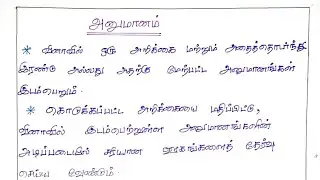 அனுமானம்
* வினாவில் ஒரு அறிக்கை மற்றும் அதைத்தொடர்ந்து
இரண்டு அல்லது அதற்கு மேற்பட்ட அனுமானங்கள்
இடம்பெறும்.
* கொடுக்கப்பட்ட அறிக்கையை மதிப்பிட்டு,
வினாவில் இடம்பெற்றுள்ள அனுமானங்களின்
அடிப்படையில் சரியான ஊகங்களைத் தேர்வு
செய்ய வேண்டும்